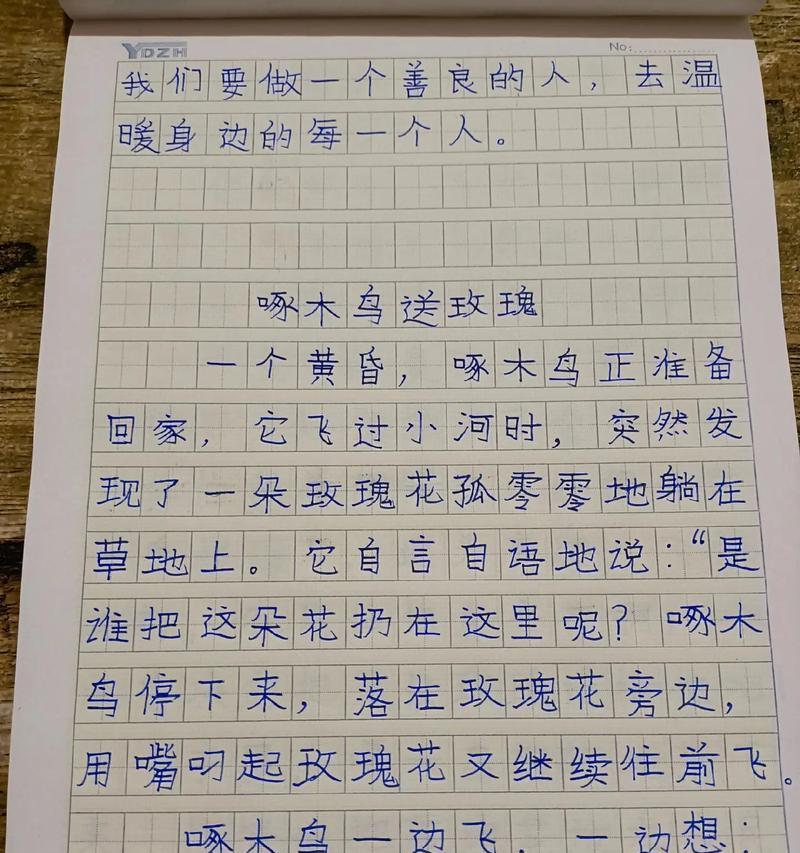 YDZH No:
我们要做一个善良的人，去温
暖身边的每一个人。
啄木鸟送玫瑰
一个黄昏，啄木鸟正准备
回家，它飞过小河时，突然发
现了一朵玫瑰花孤零零地躺在
草地上。它自言自语地说：“是
谁把这朵花扔在这里呢？啄木
鸟停下来，落在玫瑰花旁边，
用嘴叼起玫瑰花又继续住前飞。
啄木鸟一边飞，一边想：